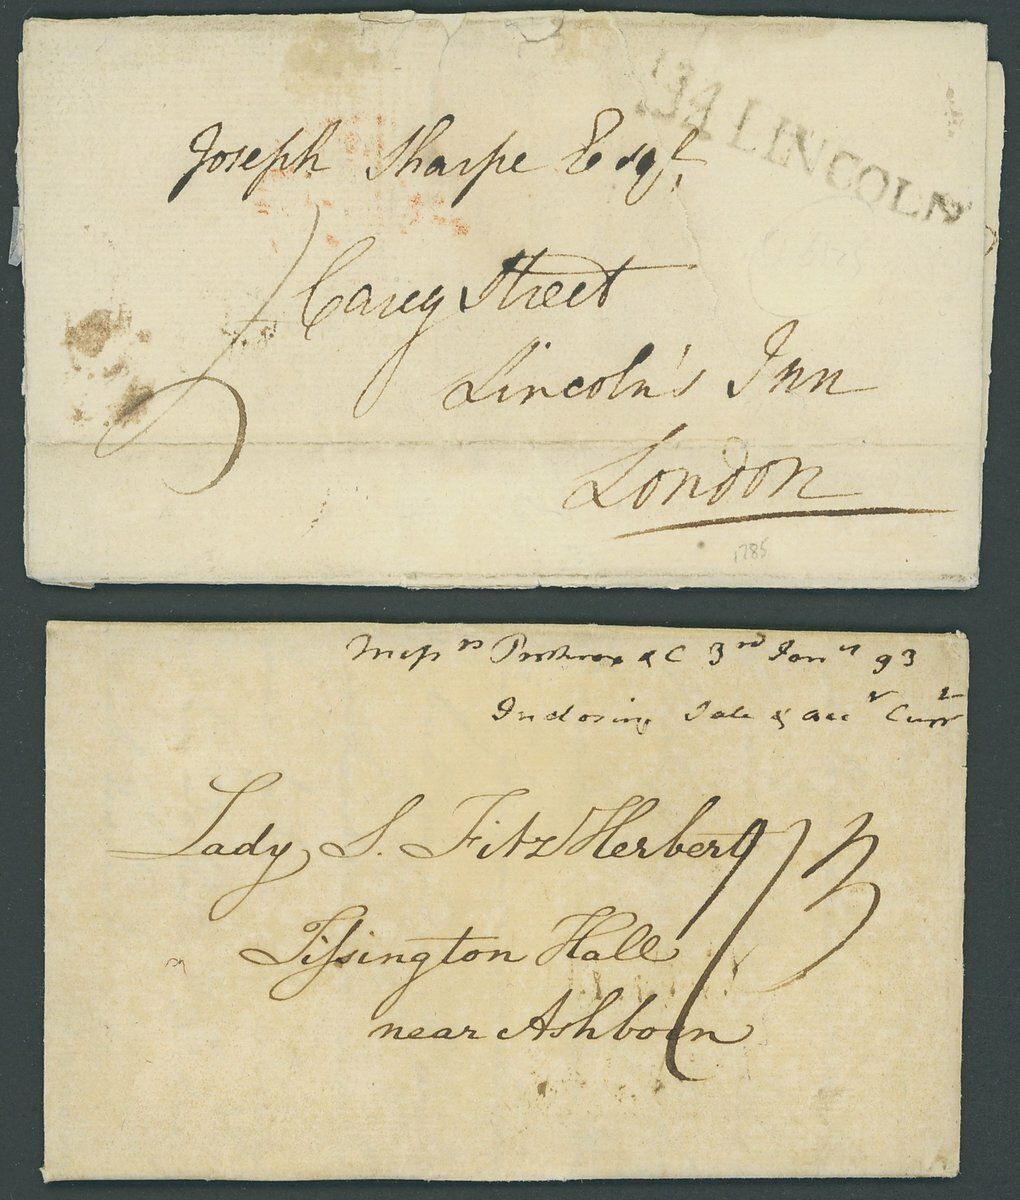 134 LINCOLN
Joseph Sharpe Esqr.
Carey Street
Lincoln's Inn
London
1785
Messrs & C 3rd Janry 93
Inclosing Sale & Acct Currt
Lady S. FitzHerbert
1/3
Tissington Hall
near Ashborn